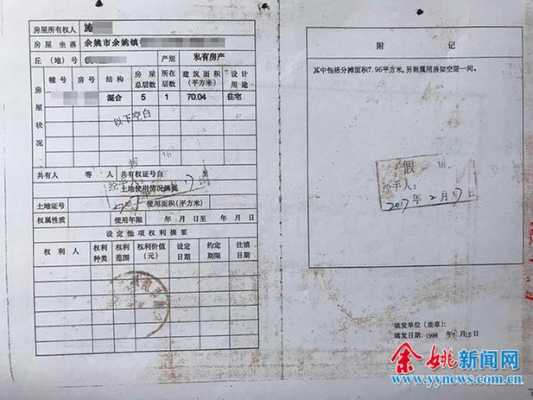 房屋所有权人 施
房屋坐落 余姚市余姚镇
丘（地）号 产别 私有房产
房屋状况
幢号 房号 结构 房屋总层数 所在层数 建筑面积（平方米） 设计用途
混合 5 1 70.04 住宅
以下空白
共有人 等 人 共有权证号自 至
土地使用情况摘要
土地证号 使用面积（平方米）
权属性质 使用年限 年 月 日至 年 月 日
设定他项权利摘要
权利人 权利种类 权利范围 权利价值（元） 设定日期 约定期限 注销日期
附 记
其中包括分摊面积7.96平方米,另附属用房架空层一间。
假
经手人：
2017年2月17日
填发单位（盖章）：
填发日期：1998年 月15日
余姚新闻网
www.yynews.com.cn